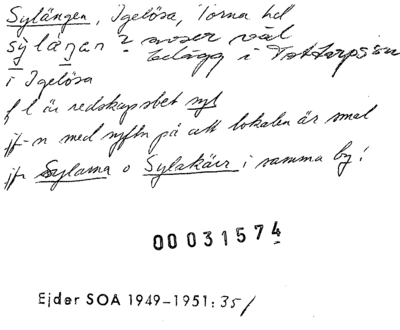 Sylängen, Igelösa, Torna hd
sýláŋan ? avser väl
tillägg i Tottarpsån
i Igelösa
f l är redskapsbet syl
jfr -n med syftn på att lokalen är smal
jfr Sylarna o Sylakärr i samma by!
00031574
Ejder SOA 1949-1951: 35/